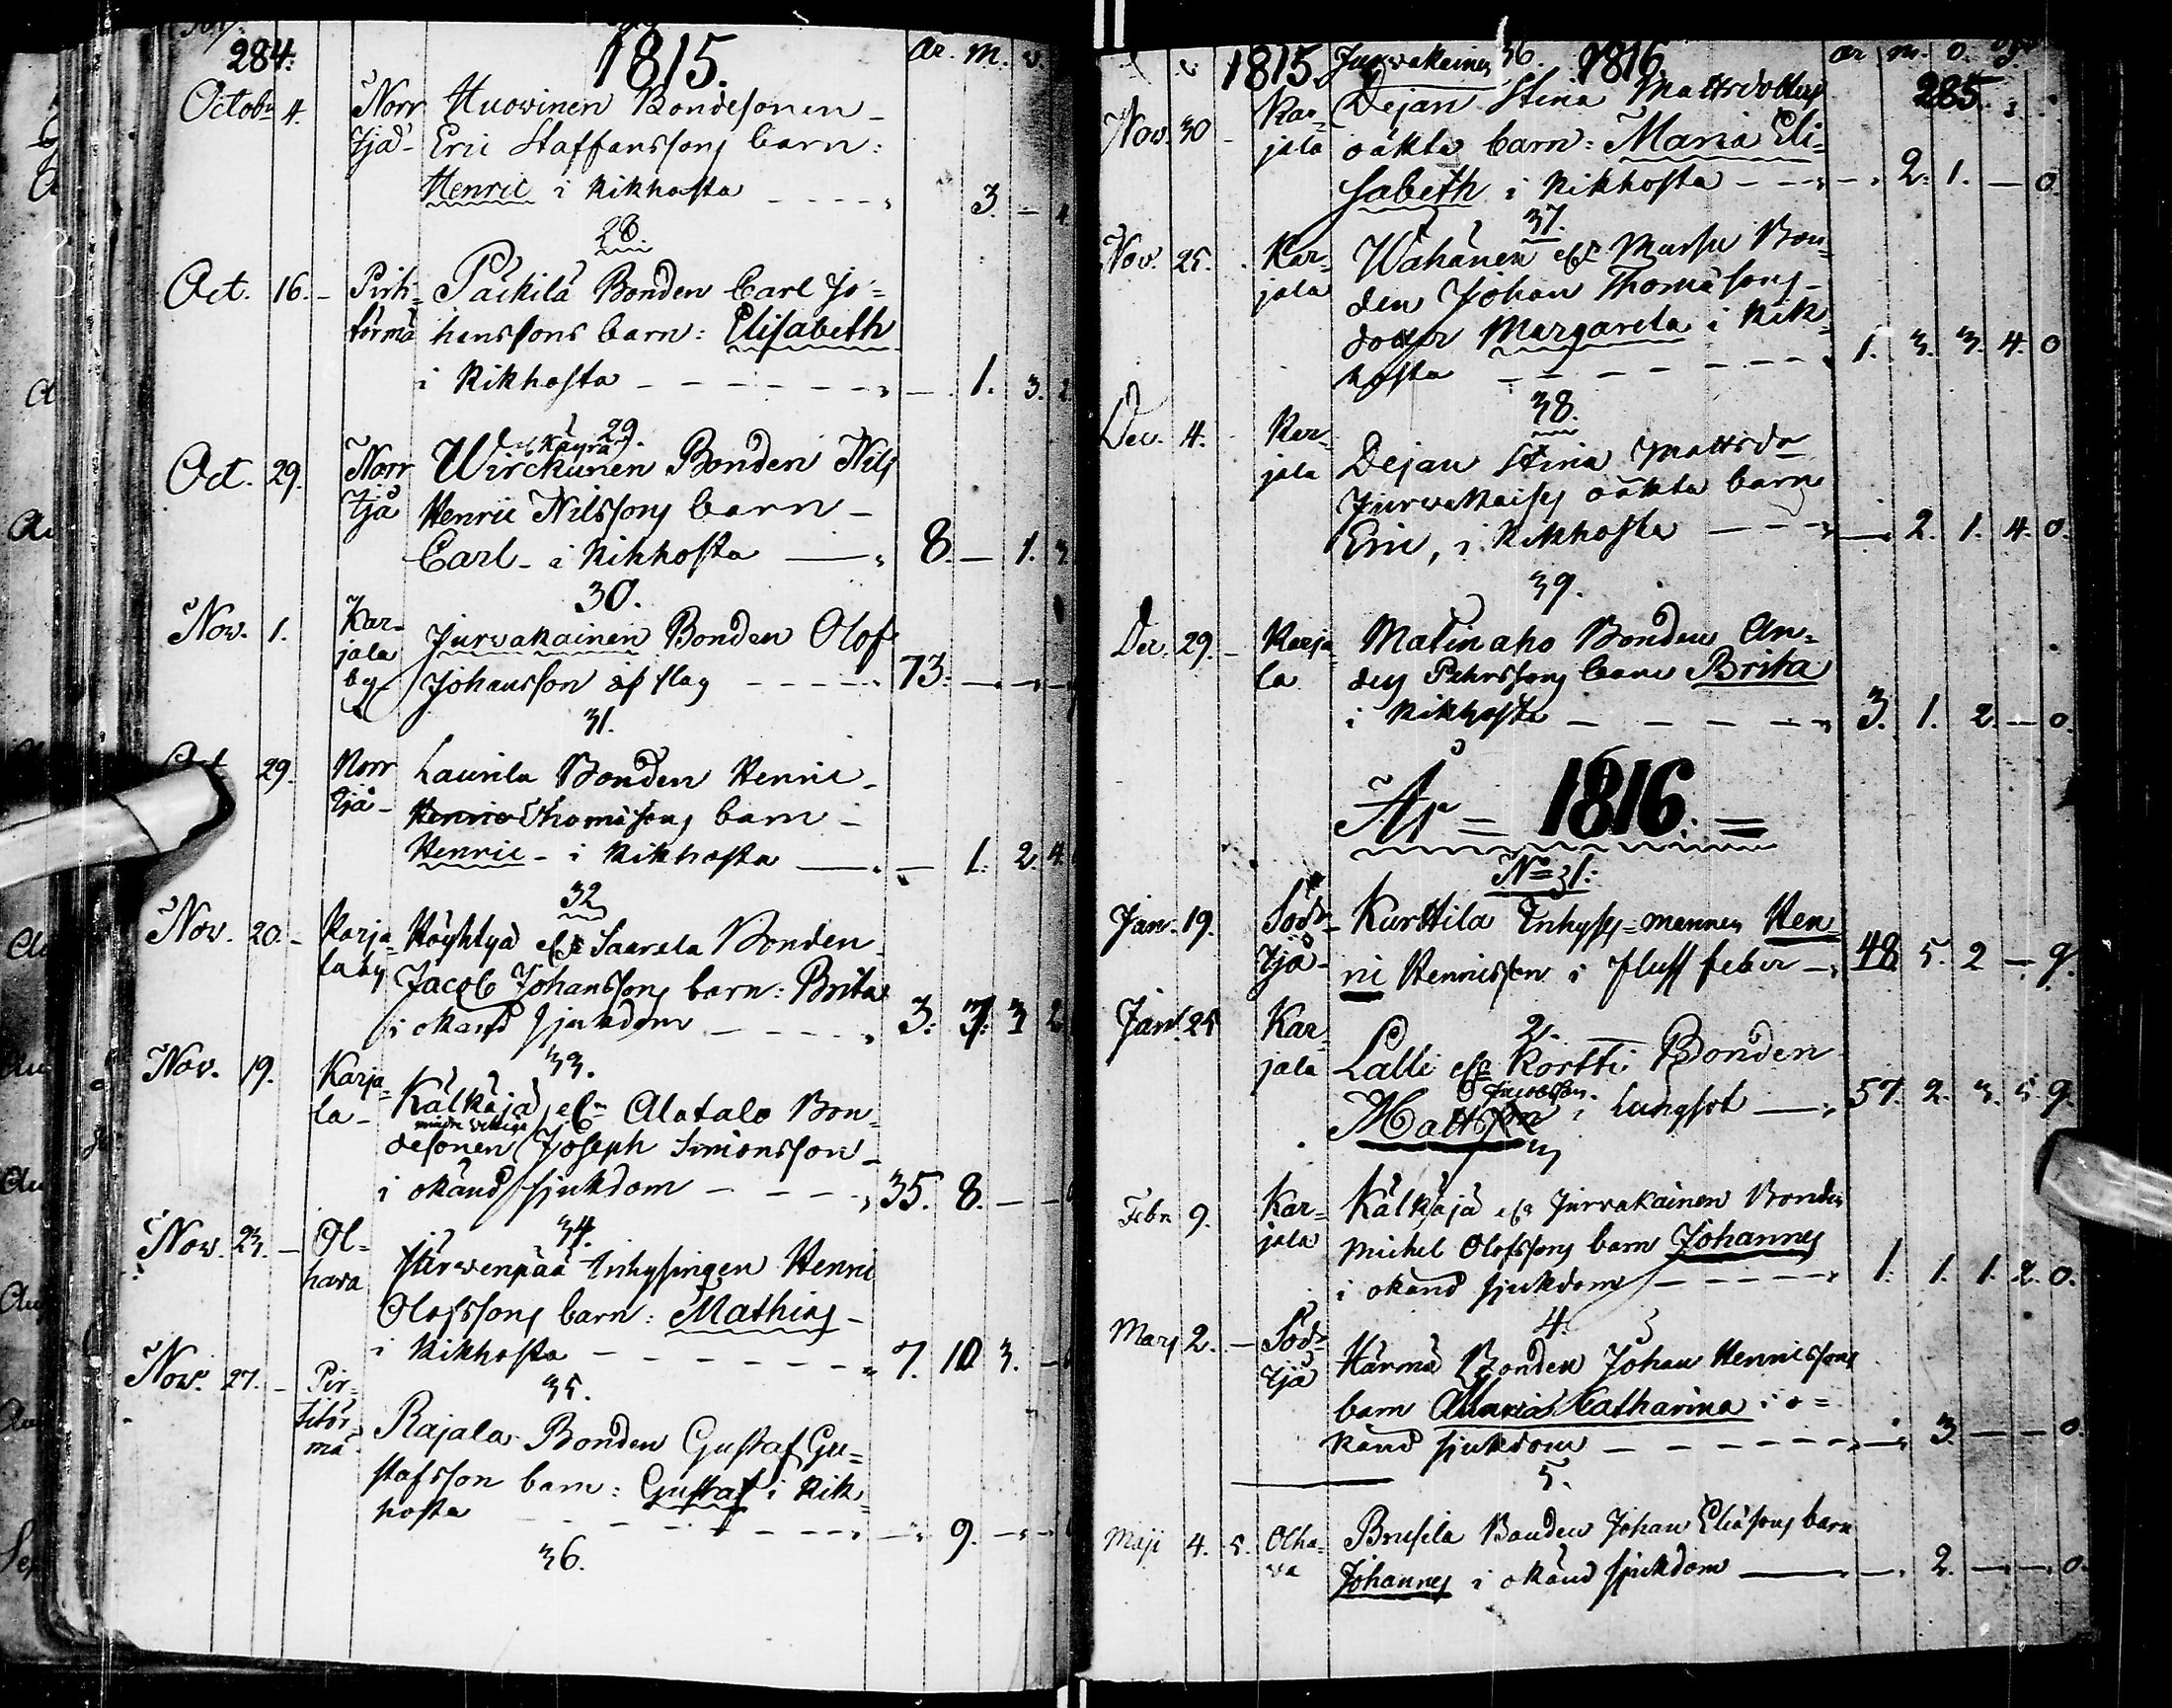 284.
1815.
år. M. v.
Octobr 4. Norr Huovinen Bondesonen
Ijå Eric Staffanssons barn:
Henric i Kikhosta - - - - 3. — 4.
28
Oct. 16. Pirti- Päckilä Bonden Carl Jo=
törmä hanssons barn: Elisabeth
i Kikhosta - - - - - - - — 1. 3. 2
29.
els Käyrä
Oct. 29. Norr Wirckunen Bonden Nils
Ijå Henric Nilssons barn -
Carl - i Kikhosta — 8. — 1. 3.
30.
Nov. 1. Kar=
jala Jurvakainen Bonden Olof
by Johansson af slag - - - - - 73. — — —
31.
Oct 29. Norr Laurila Bonden Henric -
Ijå - Henric Thomæsons barn -
Henric - i Kikhosta — — 1. 2. 4.
32
Nov. 20. - Karja= Höyhtyä els Saarela Bonden
la by Jacob Johanssons barn: Brita
i okänd sjukdom - - - - 3: 7: 3 2
33.
Nov. 19. Karja= Kälkäjä els Alatalo Bon=
la - mindre vettige
desonen Joseph Simonsson -
i okänd sjukdom - - - - 35. 8. — —
34.
Nov. 23. — Ol= Järwenpää Inhysingen Henric
hava Olofssons barn: Mathias -
i Kikhosta - - - - - - - 7. 10 3. —
35.
Nov. 27. - Pir=
titör= Rajala Bonden Gustaf Gu=
mä stafsson barn: Gustaf i Kik=
hosta - - - - - - - — 9. — —
36.
1815. Jurvakainen 36. 1816
år m. v. dgr
285.
Nov. 30 - Kar= Dejan Stina Mattsdotters
jala oäkta barn: Maria Eli=
sabeth i Kikhosta - - - — 2. 1. — 0.
37.
Nov. 25. Kar= Wähänen els Marsu Bon=
jala den Johan Thomæsons
dotter Margareta i Kik=
hosta - - - - - - 1. 3. 3. 4. 0
38.
Dec. 4. Kar=
jala Dejan Stina Mattsdr
Jurvakaises oäkta barn
Eric, i Kikhosta - - - — 2. 1. 4. 0.
39.
Dec. 29. - Karja= Matinaho Bonden An=
la ders Pehrssons barn Brita
i Kikhosta - - - - - - 3. 1. 2. — 0.
År = 1816. =
No 1.
Jan. 19. Södr Kurttila Inhyses=mannen Hen=
Ijå - ric Henricsson i fluss feber - 48 5. 2 — g.
2.
Jan. 25 Kar= Lalli els Kortti Bonden
jala Jacobsson
Matts i Lungsot — 57. 2. 3. 5. g.
3
Febr. 9. Kar= Kälkäjä els Jurvakainen Bonden
jala Michel Olofssons barn Johannes
i okänd sjukdom - - - - - 1. 1. 1. 2. 0.
4.
Mars 2. — Södr
Ijå Härmä Bonden Johan Henricssons
barn Maria Catharina i o=
känd sjukdom - - - - - - — 3. — — 0.
5.
Maji 4. 5. Olha= Brusila Bonden Johan Eliæsons barn
va Johannes i okänd sjukdom — — 2. — — 0.